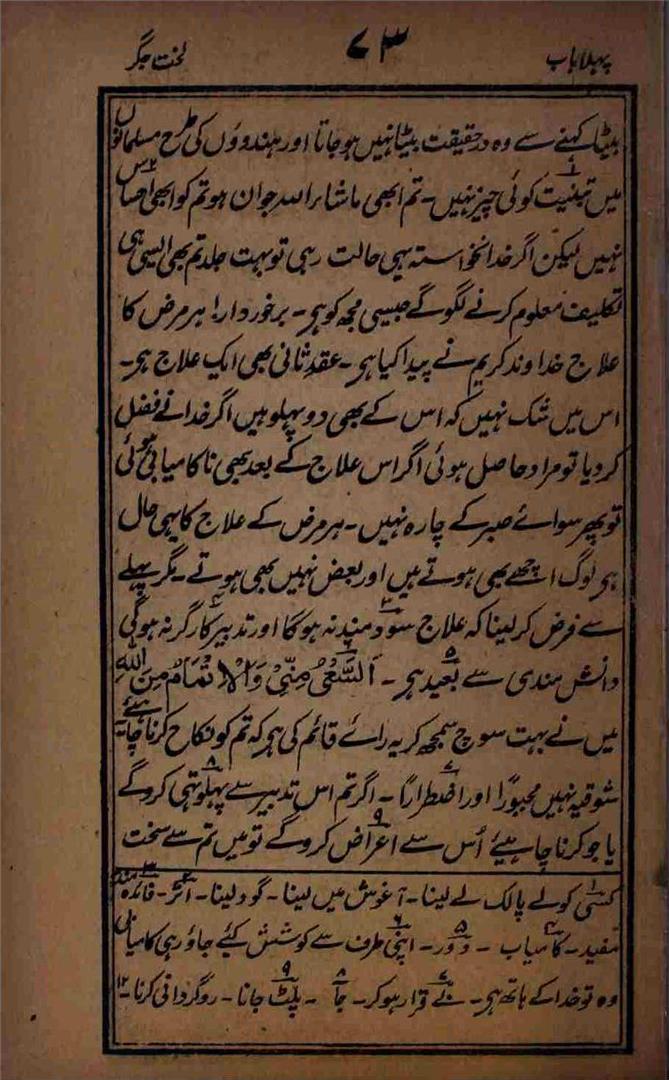 پہلا باب
۷۳
لخت جگر
بیٹا کہنے سے وہ در حقیقت بیٹا نہیں ہو جاتا اور ہندوؤں کی طرح مسلمانوں
میں تبنیت۱ کوئی چیز نہیں۔ تم ابھی ماشاء اللہ جوان ہو تم کو ابھی احساس۲
نہیں لیکن اگر خدانخواستہ یہی حالت رہی تو بہت جلد تم بھی ایسی ہی
تکلیف معلوم کرنے لگو گے جیسی مجھ کو ہی۔ برخوردار! ہر مرض کا
علاج خداوند کریم نے پیدا کیا ہی۔ عقد ثانی بھی ایک علاج ہی۔
اس میں شک نہیں کہ اس کے بھی دو پہلو ہیں اگر خدا نے فضل
کر دیا تو مراد حاصل ہوئی اگر اس علاج کے بعد بھی ناکامیابی ہوئی
تو پھر سوائے صبر کے چارہ نہیں۔ ہر مرض کے علاج کا یہی حال
ہی لوگ اچھے بھی ہوتے ہیں اور بعض نہیں بھی ہوتے۔ مگر پہلے
سے فرض کر لینا کہ علاج سود مند۳ نہ ہوگا اور تدبیر کارگر۴ نہ ہوگی
دانش مندی سے بعید۵ ہی۔ اَلسَّعْیُ مِنِّیْ وَالْاِتْمَامُ مِنَ اللّٰہِ۶
میں نے بہت سوچ سمجھ کر یہ رائے قائم کی ہی کہ تم کو نکاح کرنا چاہیئے
شوقیہ نہیں مجبوراً اور اضطراراً۷۔ اگر تم اس تدبیر سے پہلو تہی۸ کرو گے
یا جو کرنا چاہیئے اُس سے اعراض۹ کرو گے تو میں تم سے سخت
۱ کسی کو لے پالک لے لینا۔ آغوش میں لینا۔ گود لینا۔ ۲ اثر۔ ۳ فائدہ مند
مفید۔ ۴ کامیاب۔ ۵ دور۔ ۶ اپنی طرف سے کوشش کیئے جاؤ رہی کامیابی
وہ تو خدا کے ہاتھ ہی۔ ۷ بے قرار ہو کر۔ ۸ جا۔ ۹ پلٹ جانا۔ روگردانی کرنا۔ ۱۲